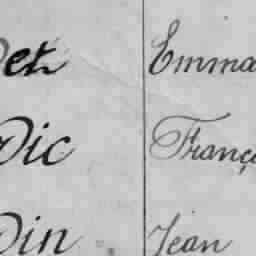 Det Emma
Dic Franç
Din Jean